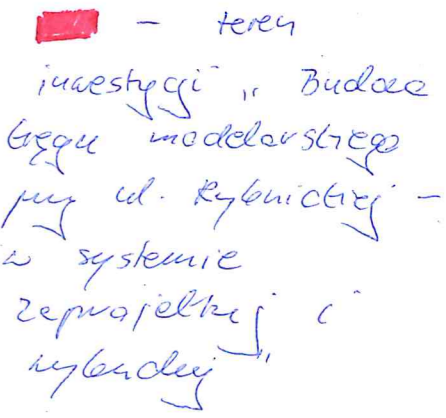 – teren
inwestycji „Budowa
toru modelarskiego
przy ul. Rybnickiej –
w systemie
zaprojektuj i
wybuduj”